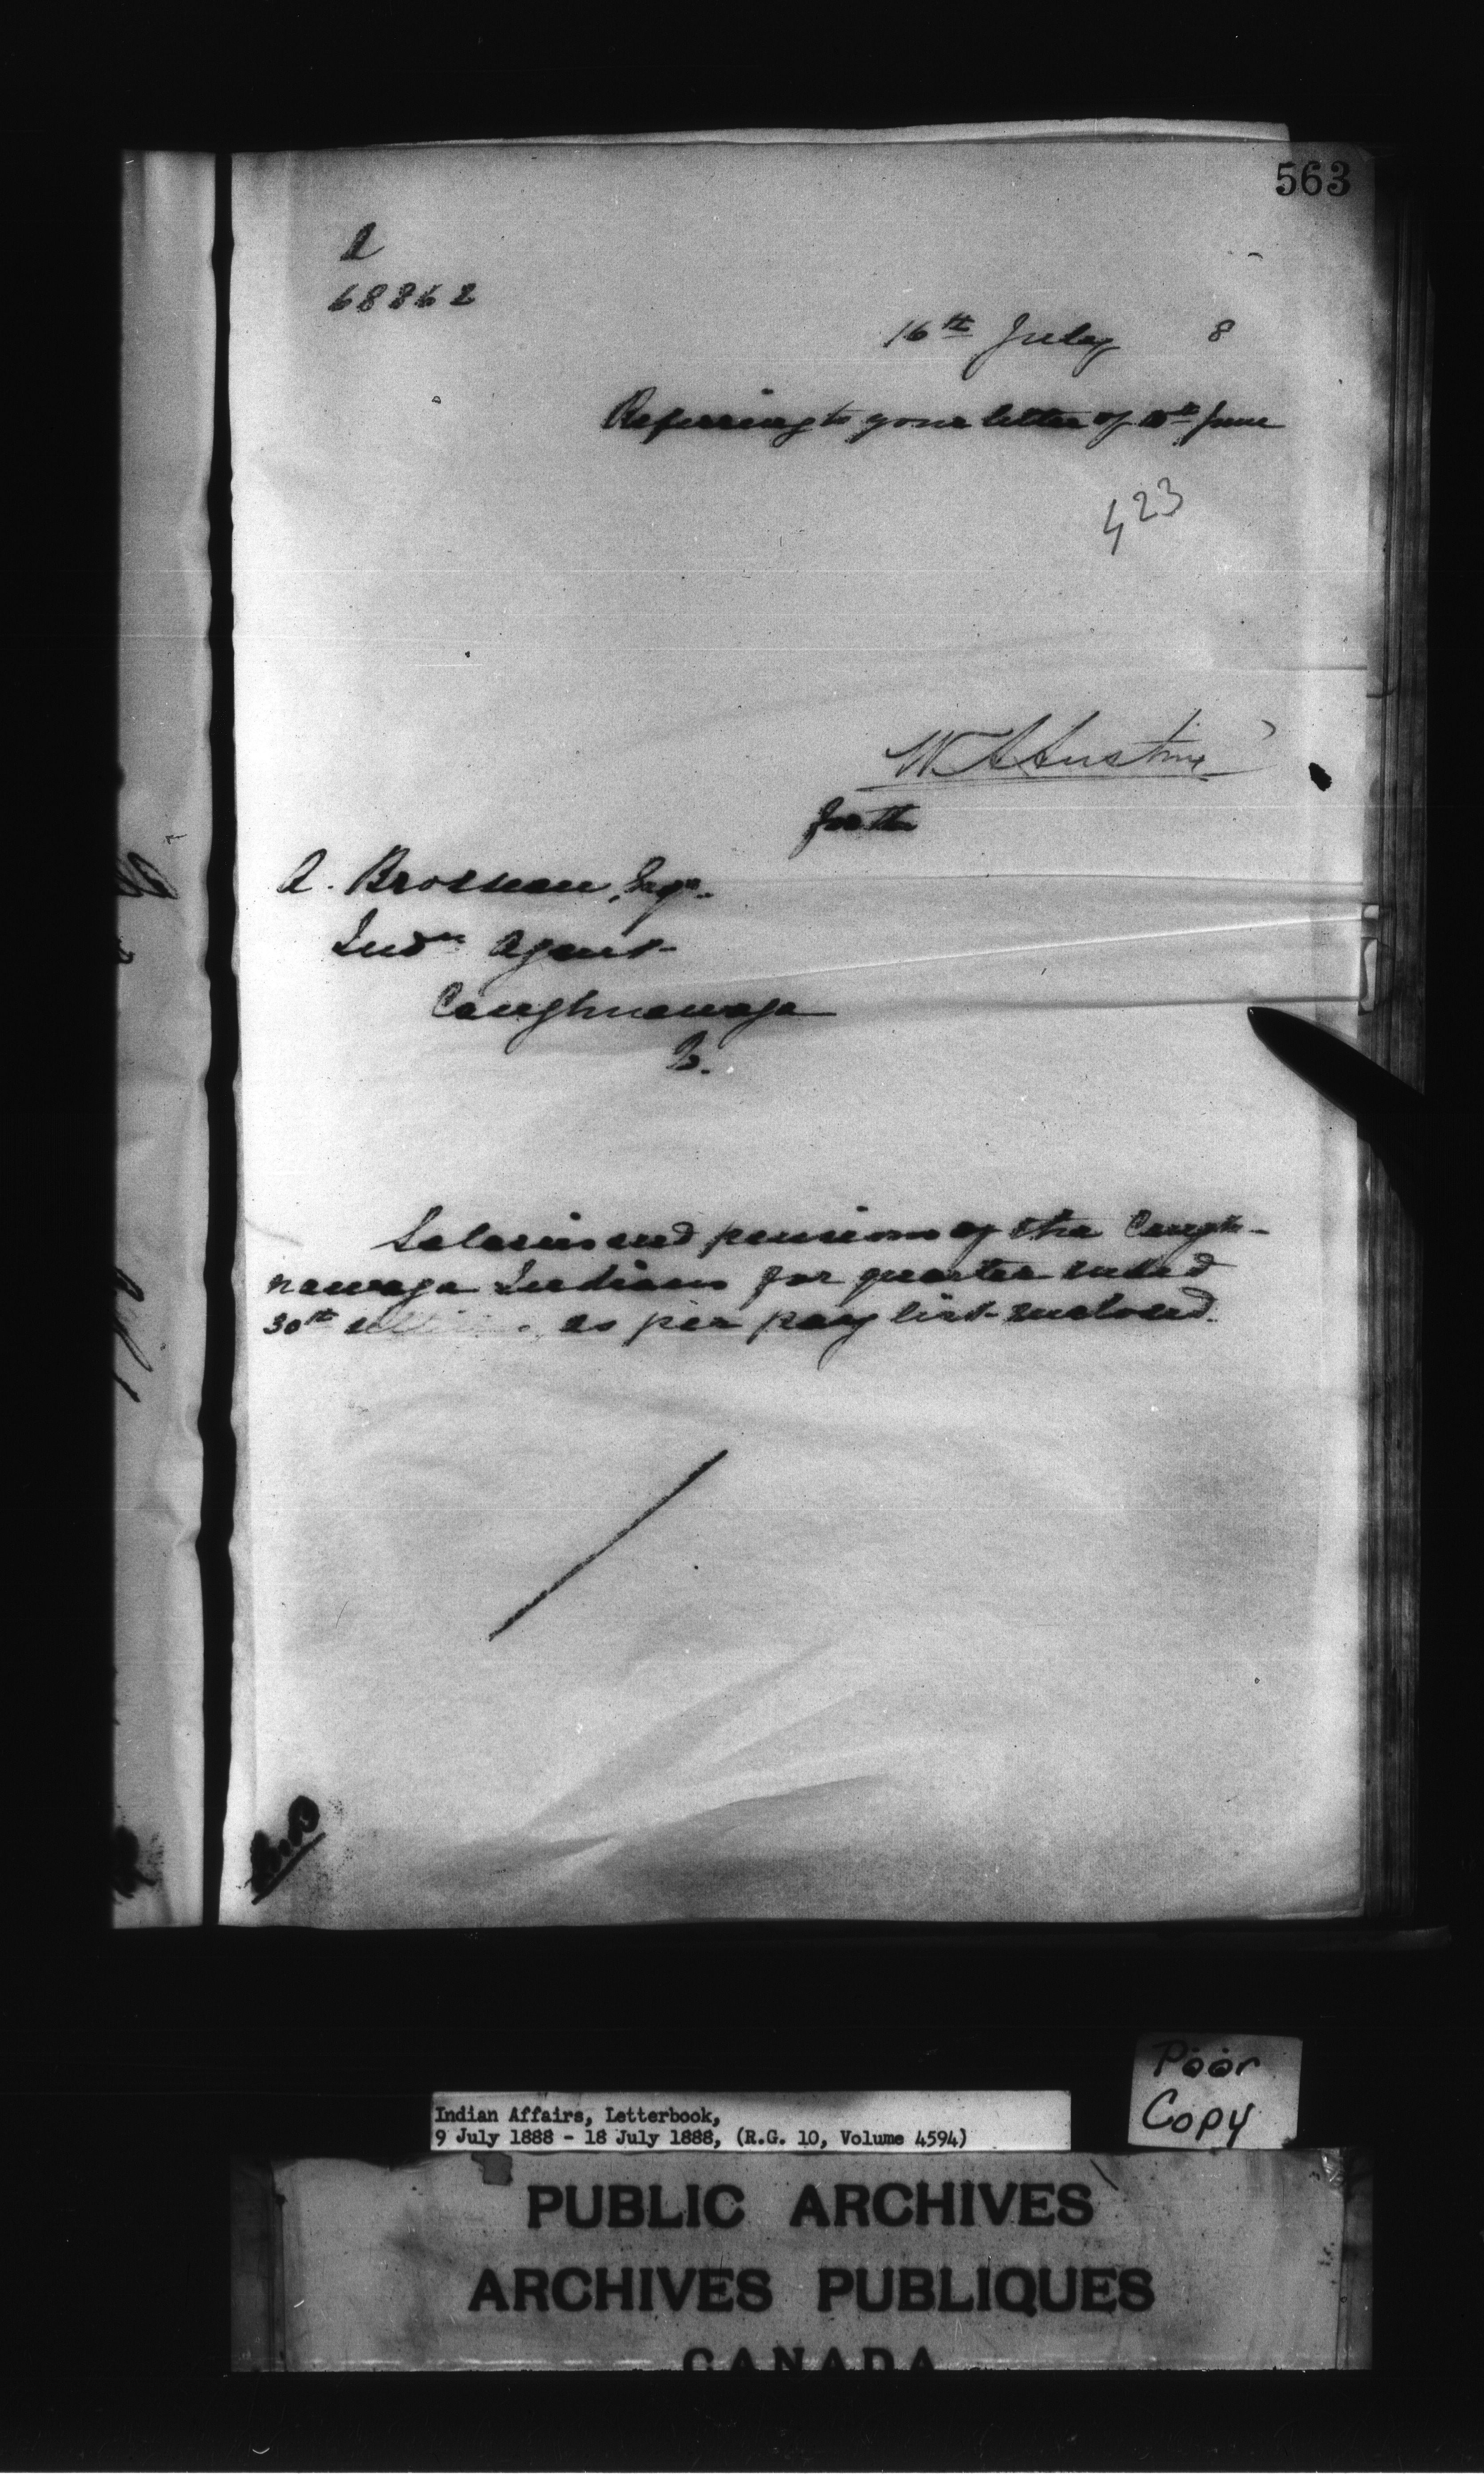 563
A
68862
16th July 8
Referring to your letter of June
423
W. A. Austin
for the
A. Brosseau, Esqr.
Indn Agent
Caughnawaga
Q.
Salaries and pensions of the Caugh-
nawaga Indians for quarter ended
30th ultimo, as per pay list enclosed.
Poor
Copy
Indian Affairs, Letterbook,
9 July 1888 - 18 July 1888, (R.G. 10, Volume 4594)
PUBLIC ARCHIVES
ARCHIVES PUBLIQUES
CANADA